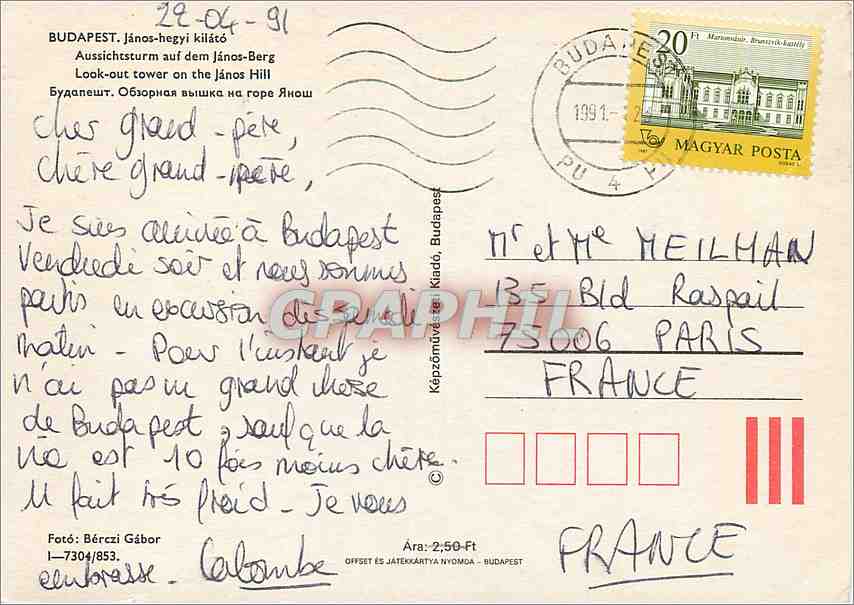 22-04-91
BUDAPEST. János-hegyi kilátó
Aussichtsturm auf dem János-Berg
Look-out tower on the János Hill
Будапешт. Обзорная вышка на горе Янош
Cher grand-père,
Chère grand-mère,
Je suis arrivée à Budapest
Vendredi soir et nous sommes
partis en excursion dès samedi
matin - Pour l'instant je
n'ai pas vu grand chose
de Budapest, sauf que la
vie est 10 fois moins chère.
Il fait très froid - Je vous
embrasse - Colombe
Fotó: Bérczi Gábor
I—7304/853.
Képzőművészeti Kiadó, Budapest
©
Ára: 2,50 Ft
OFFSET ÉS JÁTÉKKÁRTYA NYOMDA - BUDAPEST
BUDAPEST
1991.
PU 4
20 Ft Martonvásár, Brunszvik-kastély
MAGYAR POSTA
Mr et Me MEILMAN
135 Bld Raspail
75006 PARIS
FRANCE
FRANCE
CPAPHIL